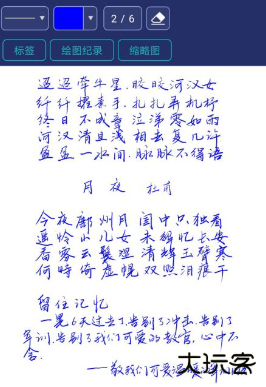 2 / 6
标签
绘图纪录
缩略图
迢迢牵牛星,皎皎河汉女
纤纤擢素手,扎扎弄机杼
终日不成章 泣涕零如雨
河汉清且浅 相去复几许
盈盈一水间,脉脉不得语
月夜 杜甫
今夜鄜州月 闺中只独看
遥怜小儿女 未解忆长安
香雾云鬟湿 清辉玉臂寒
何时倚虚幌 双照泪痕干
留住记忆
一晃6天过去了,告别了冲击,告别了
军训,告别了我们可爱的教官,心中不
舍.
——敬我们可爱
大玩家